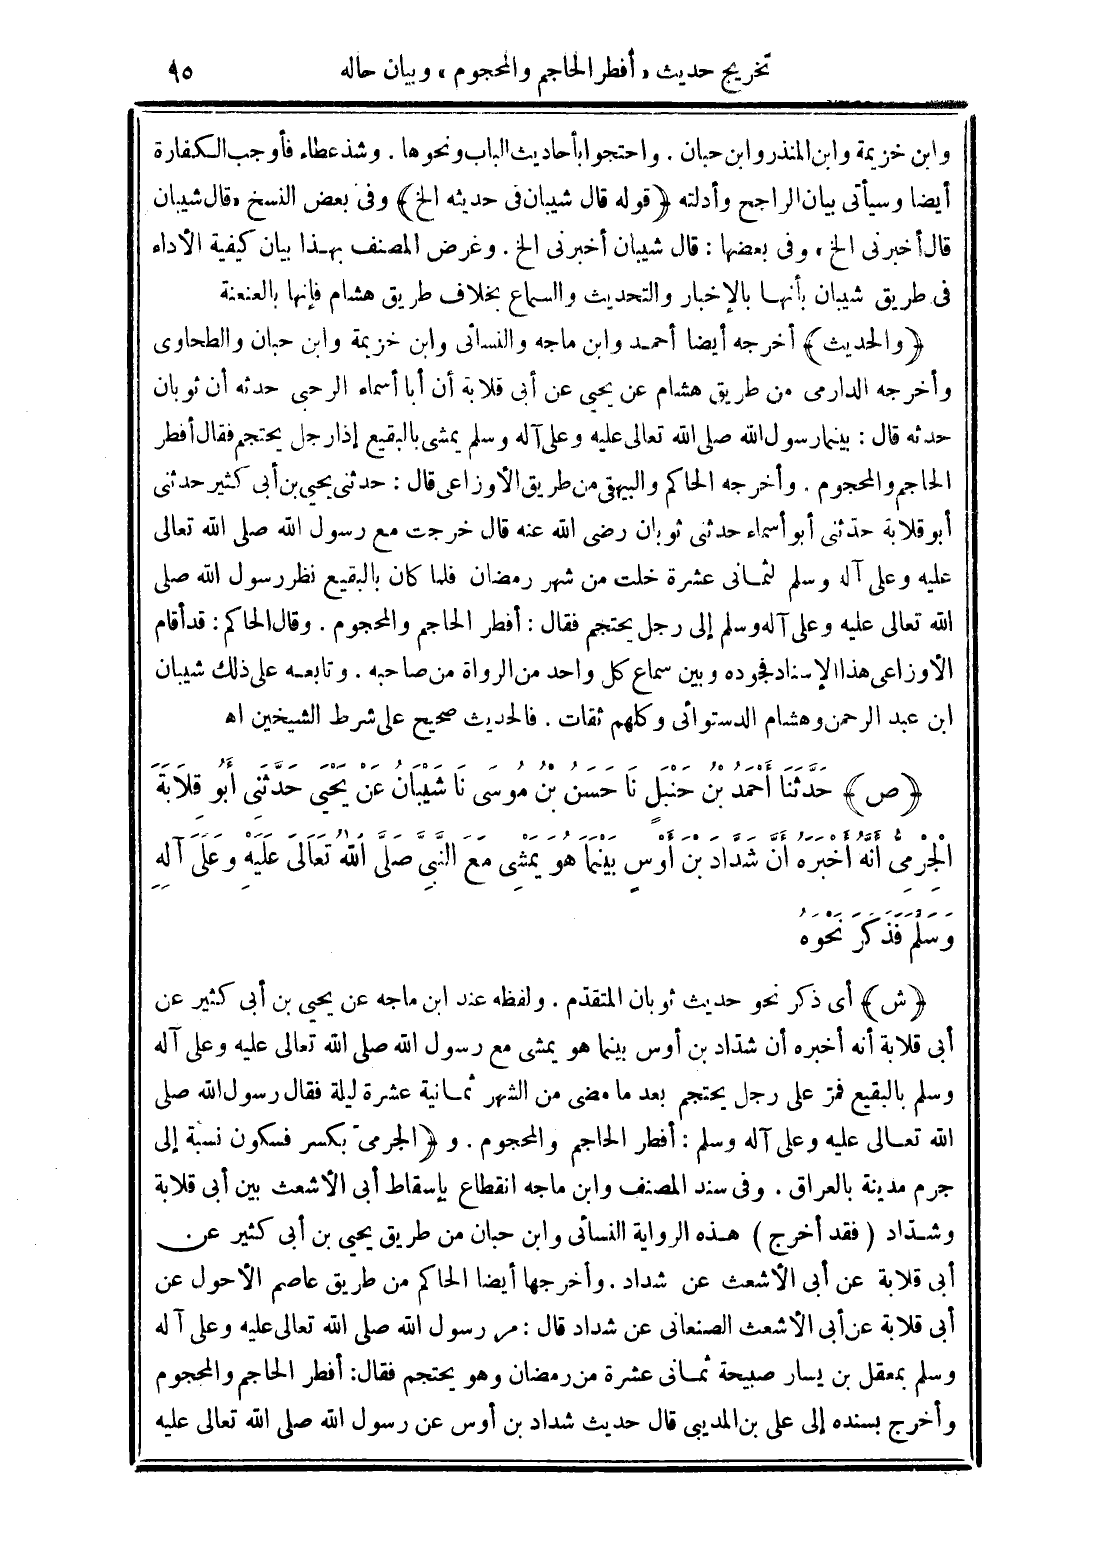 تخريج حديث «أفطر الحاجم والمحجوم» وبيان حاله ٩٥
وابن خزيمة وابن المنذر وابن حبان . واحتجوا بأحاديث الباب ونحوها . وشذ عطاء فأوجب الكفارة
أيضا وسيأتى بيان الراجح وأدلته ﴿قوله قال شيبان فى حديثه الخ﴾ وفى بعض النسخ «قال شيبان
قال أخبرنى الخ» وفى بعضها : قال شيبان أخبرنى الخ . وغرض المصنف بهذا بيان كيفية الأداء
فى طريق شيبان بأنها بالإخبار والتحديث والسماع بخلاف طريق هشام فإنها بالعنعنة
﴿والحديث﴾ أخرجه أيضا أحمد وابن ماجه والنسائى وابن خزيمة وابن حبان والطحاوى
وأخرجه الدارمى من طريق هشام عن يحيى عن أبى قلابة أن أبا أسماء الرحبى حدثه أن ثوبان
حدثه قال : بينما رسول الله صلى الله تعالى عليه وعلى آله وسلم يمشى بالبقيع إذا رجل يحتجم فقال أفطر
الحاجم والمحجوم . وأخرجه الحاكم والبيهقى من طريق الأوزاعى قال : حدثنى يحيى بن أبى كثير حدثنى
أبو قلابة حدثنى أبو أسماء حدثنى ثوبان رضى الله عنه قال خرجت مع رسول الله صلى الله تعالى
عليه وعلى آله وسلم لثمانى عشرة خلت من شهر رمضان فلما كان بالبقيع نظر رسول الله صلى
الله تعالى عليه وعلى آله وسلم إلى رجل يحتجم فقال : أفطر الحاجم والمحجوم . وقال الحاكم : قد أقام
الأوزاعى هذا الإسناد فجوده وبين سماع كل واحد من الرواة من صاحبه . وتابعه على ذلك شيبان
ابن عبد الرحمن وهشام الدستوائى وكلهم ثقات . فالحديث صحيح على شرط الشيخين اه
﴿ص﴾ حَدَّثَنَا أَحْمَدُ بْنُ حَنْبَلٍ نَا حَسَنُ بْنُ مُوسَى نَا شَيْبَانُ عَنْ يَحْيَى حَدَّثَنِى أَبُو قِلَابَةَ
الْجَرْمِىُّ أَنَّهُ أَخْبَرَهُ أَنَّ شَدَّادَ بْنَ أَوْسٍ بَيْنَمَا هُوَ يَمْشِى مَعَ النَّبِىِّ صَلَّى اللهُ تَعَالَى عَلَيْهِ وَعَلَى آلِهِ
وَسَلَّمَ فَذَكَرَ نَحْوَهُ
﴿ش﴾ أى ذكر نحو حديث ثوبان المتقدم . ولفظه عند ابن ماجه عن يحيى بن أبى كثير عن
أبى قلابة أنه أخبره أن شداد بن أوس بينما هو يمشى مع رسول الله صلى الله تعالى عليه وعلى آله
وسلم بالبقيع فمرّ على رجل يحتجم بعد ما مضى من الشهر ثمانية عشرة ليلة فقال رسول الله صلى
الله تعالى عليه وعلى آله وسلم : أفطر الحاجم والمحجوم . و ﴿الجرمىّ بكسر فسكون نسبة إلى
جرم مدينة بالعراق . وفى سند المصنف وابن ماجه انقطاع بإسقاط أبى الأشعث بين أبى قلابة
وشداد ( فقد أخرج ) هذه الرواية النسائى وابن حبان من طريق يحيى بن أبى كثير عن
أبى قلابة عن أبى الأشعث عن شداد . وأخرجها أيضا الحاكم من طريق عاصم الأحول عن
أبى قلابة عن أبى الأشعث الصنعانى عن شداد قال : مر رسول الله صلى الله تعالى عليه وعلى آله
وسلم بمعقل بن يسار صبيحة ثمانى عشرة من رمضان وهو يحتجم فقال : أفطر الحاجم والمحجوم
وأخرج بسنده إلى على بن المدينى قال حديث شداد بن أوس عن رسول الله صلى الله تعالى عليه